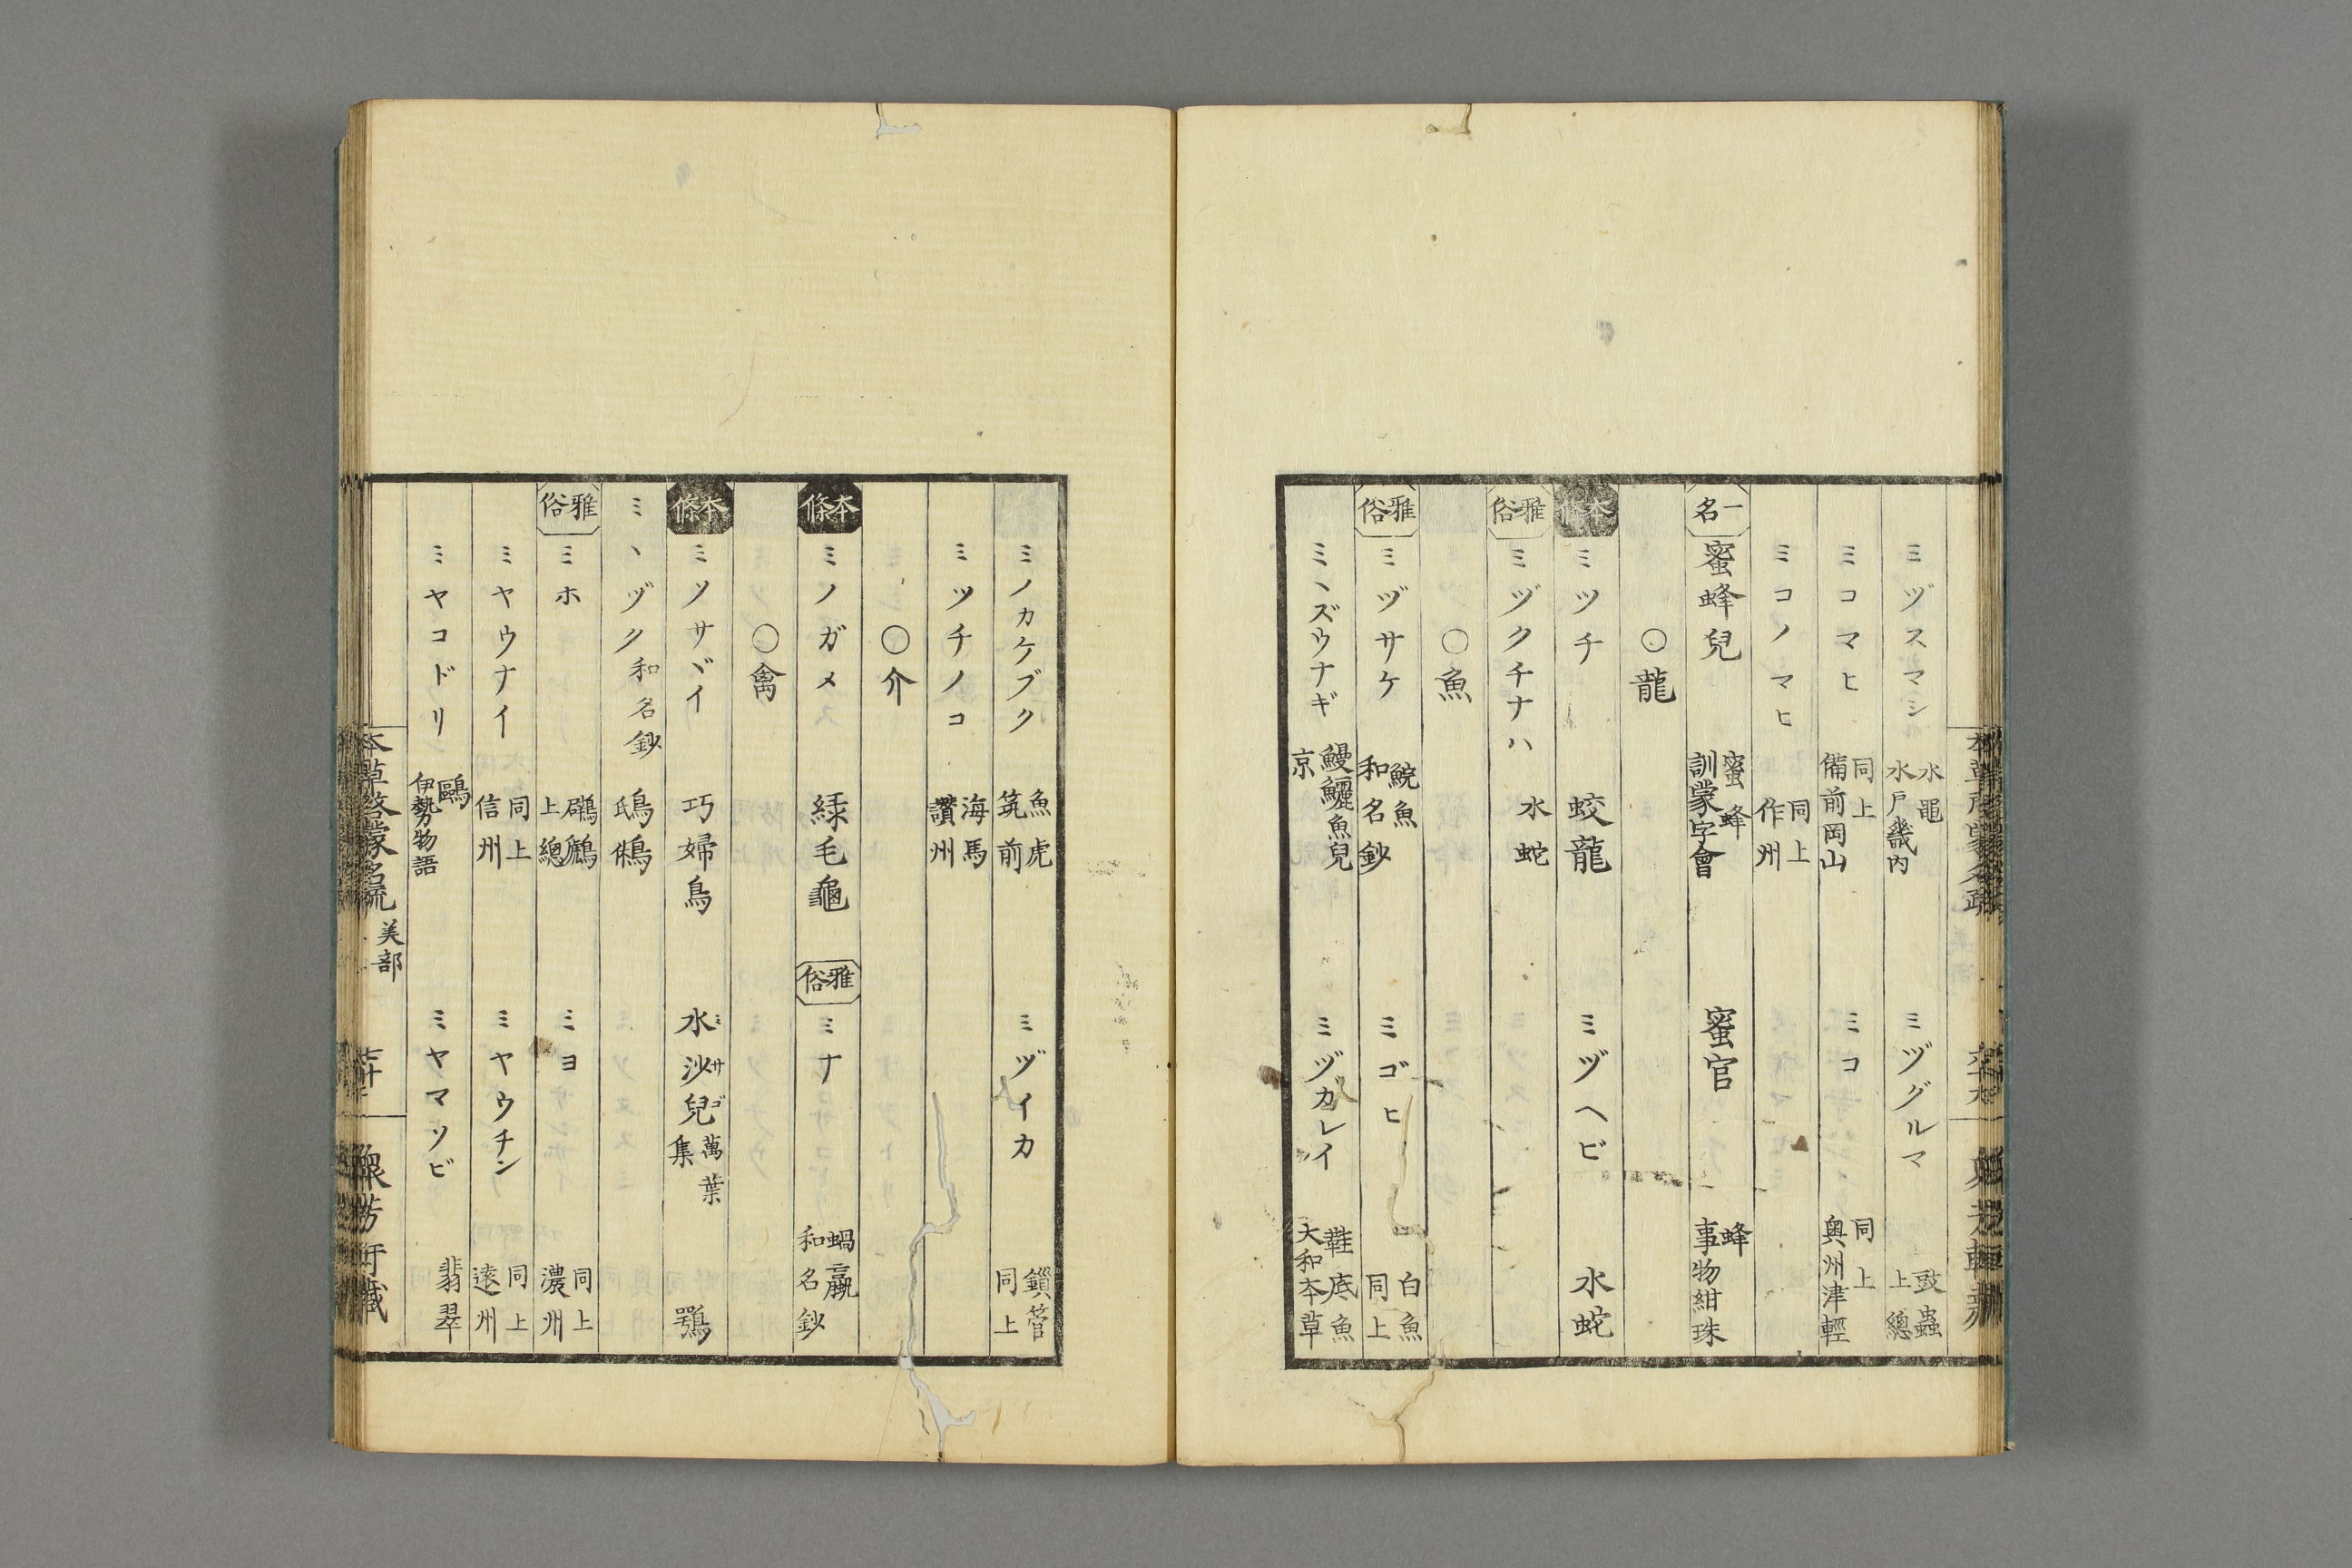 ミヅスマシ 水黽 水戸畿内 ミヅグルマ 豉蟲 上總
ミコマヒ 同上 備前岡山 ミコ 同上 奥州津輕
ミコノマヒ 同上 作州
一名 蜜蜂兒 蜜蜂 訓蒙字會 蜜官 蜂 事物紺珠
○龍
本條 ミツチ 蛟龍 ミヅヘビ 水蛇
雅俗 ミヅクチナハ 水蛇
○魚
雅俗 ミヅサケ 鯇魚 和名鈔 ミゴヒ 白魚 同上
ミヽズウナギ 鰻鱺魚兒 京 ミヅガレイ 鞋底魚 大和本草
ミノカケブク 魚虎 筑前 ミヅイカ 鎖管 同上
ミツチノコ 海馬 讚州
○介
本條 ミノガメ 緑毛龜 雅俗 ミナ 蝸蠃 和名鈔
○禽
本條 ミソサヾイ 巧婦鳥 水沙兒 ミサゴ 萬葉集 鶚
ミヽヅク 和名鈔 鴟鵂
雅俗 ミホ 鸊鷉 上總 ミヨ 同上 濃州
ミヤウナイ 同上 信州 ミヤウチン 同上 遠州
ミヤコドリ 鷗 伊勢物語 ミヤマソビ 翡翠
本草啓蒙名疏 美部